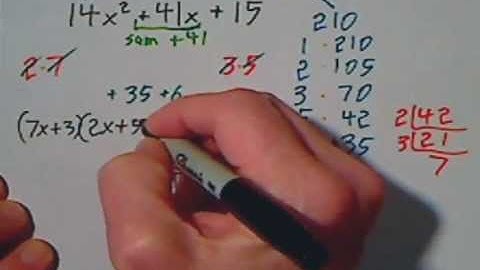 14x² + 41x + 15
sum +41
2·7 3·5
+35 +6
(7x+3)(2x+5
210
1 · 210
2 · 105
3 · 70
5 · 42
35
2 42
3 21
7